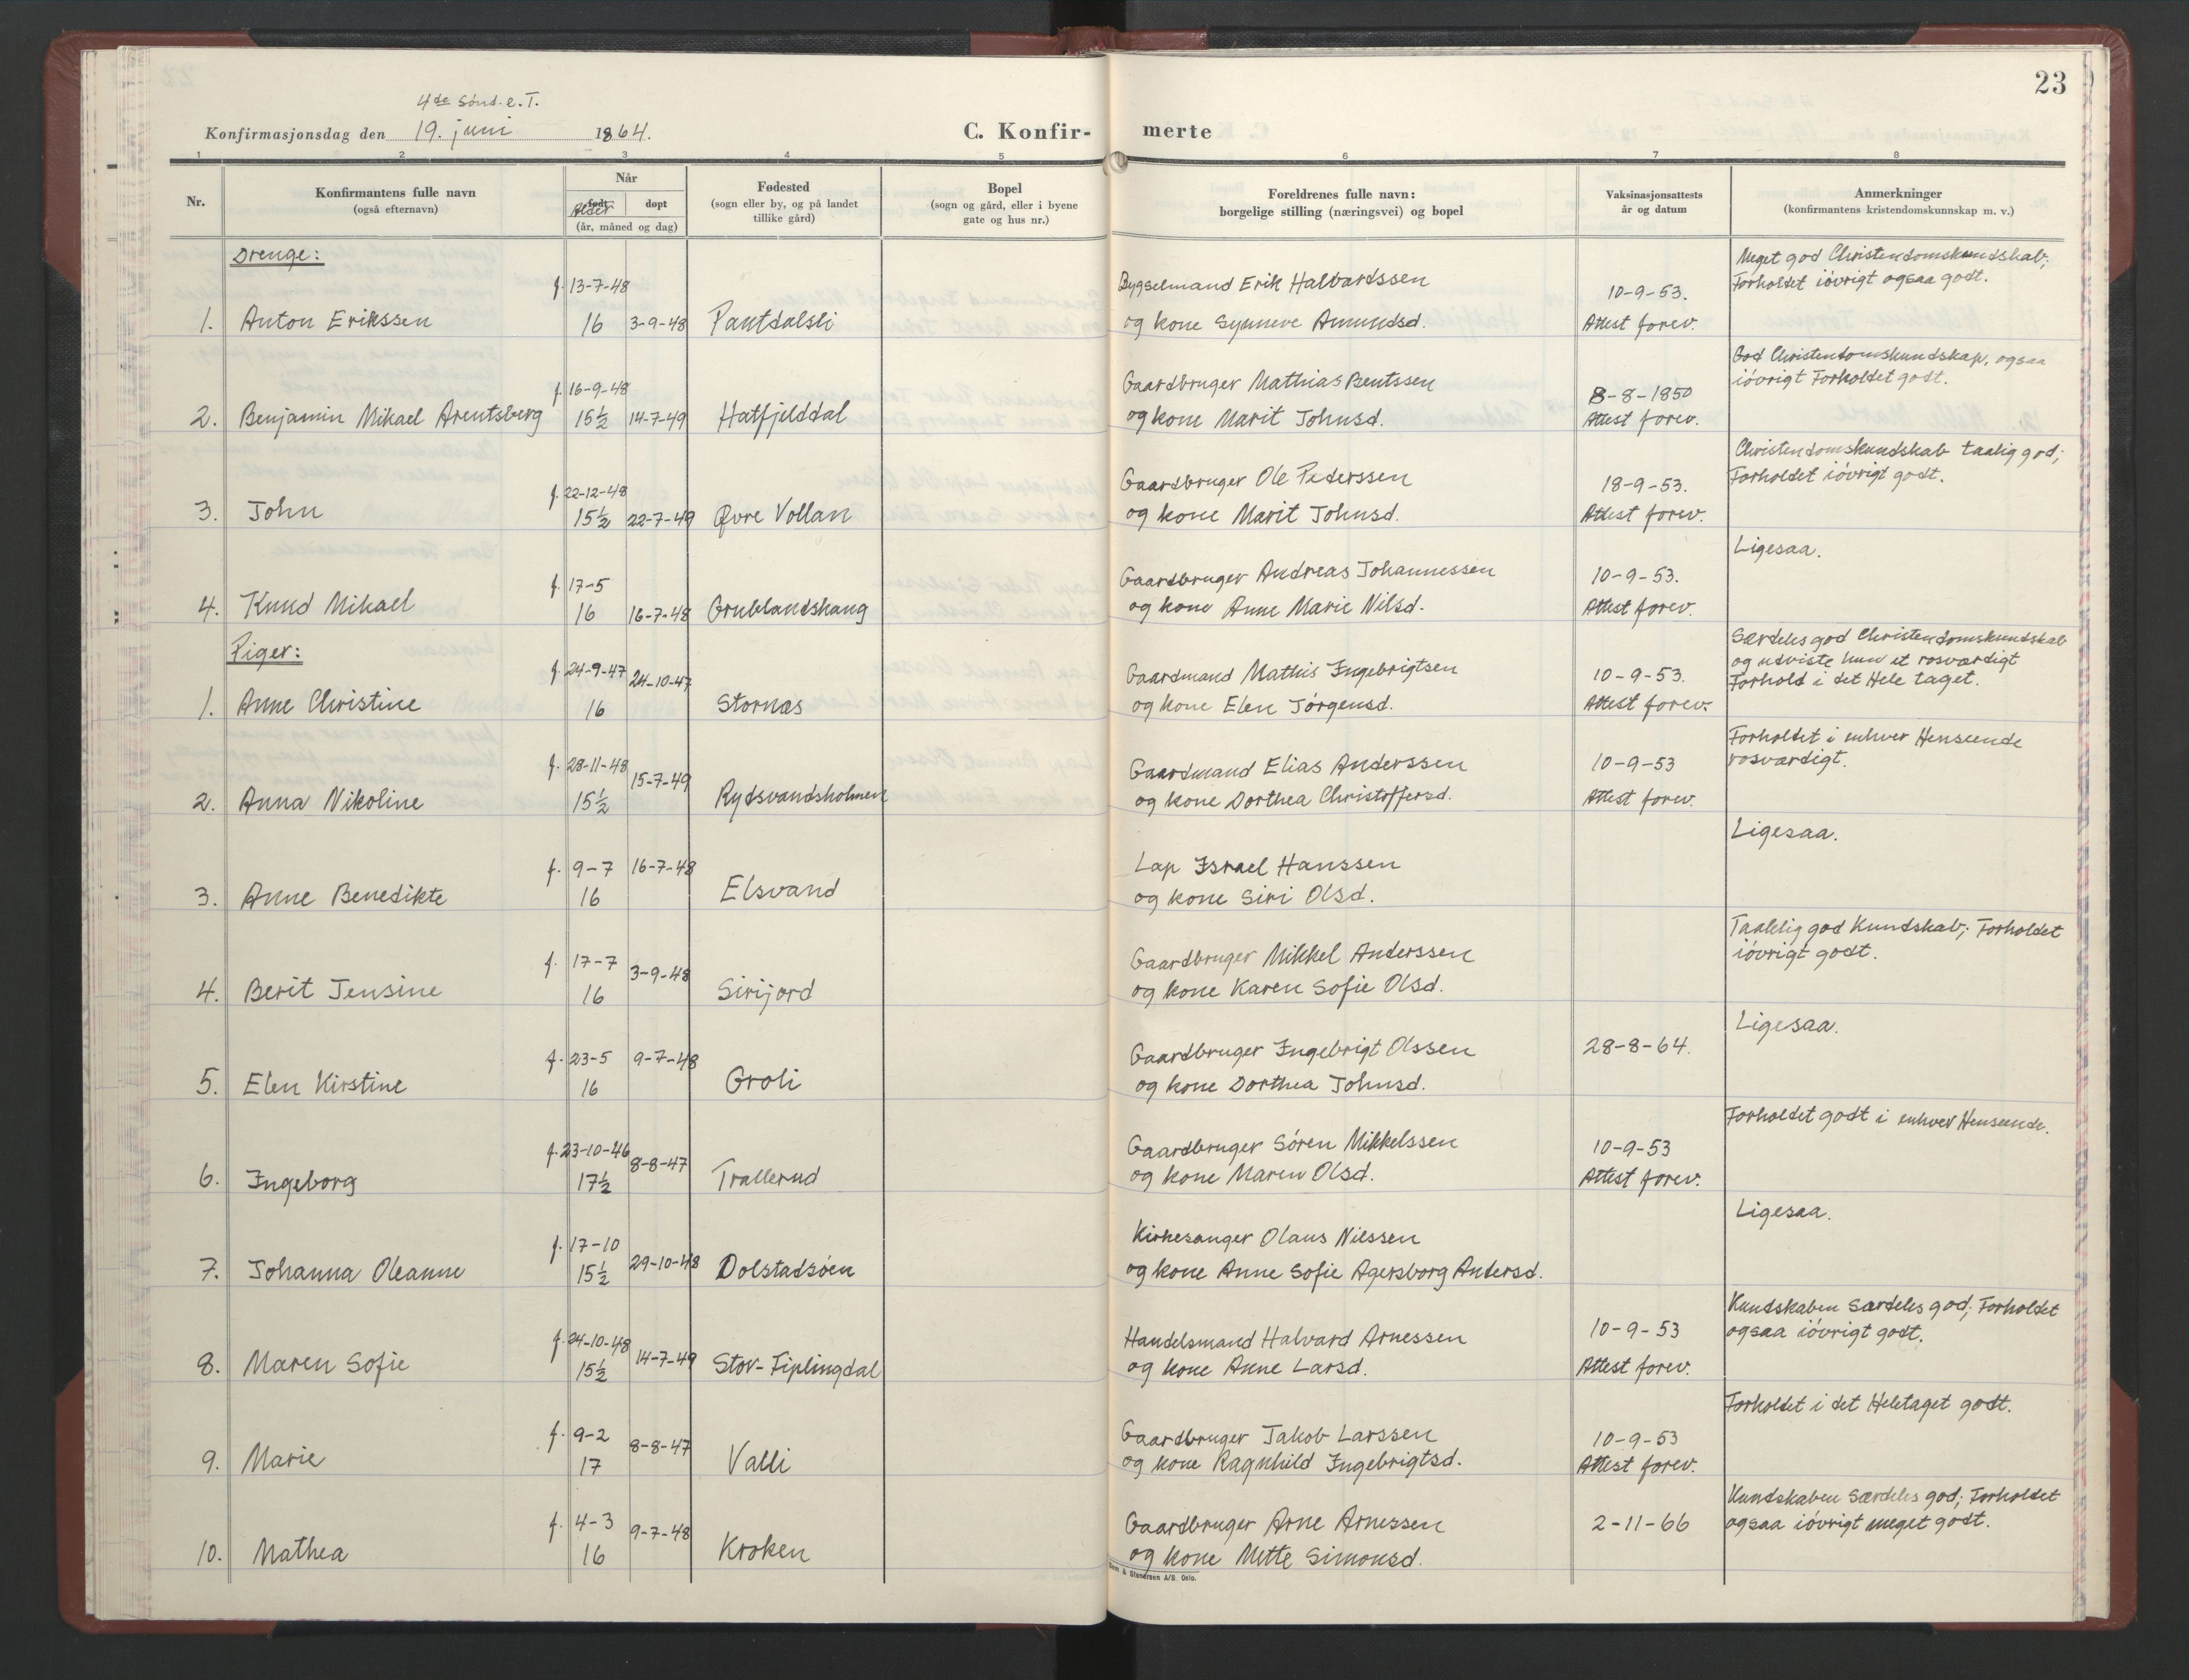 23
4de Sønd. e. T.
Konfirmasjonsdag den 19. juni 1864.
C. Konfir-merte
1 2 3 4 5 6 7 8
Nr.
Konfirmantens fulle navn
(også efternavn)
Når
født Alder
døpt
(år, måned og dag)
Fødested
(sogn eller by, og på landet
tillike gård)
Bopel
(sogn og gård, eller i byene
gate og hus nr.)
Foreldrenes fulle navn:
borgelige stilling (næringsvei) og bopel
Vaksinasjonsattests
år og datum
Anmerkninger
(konfirmantens kristendomskunnskap m. v.)
Drenge:
f. 13-7-48 Bygselmand Erik Halvardssen 10-9-53. Meget god Christendomskundskab;
1. Anton Erikssen 16 3-9-48 Pantdalsli og kone Synneve Amundsd. Attest forev. Forholdet iövrigt ogsaa godt.
f. 16-9-48 Gaardbruger Mathias Bentssen 8-8-1850 God Christendomskundskap, ogsaa
2. Benjamin Mikael Arentsberg 15½ 14-7-49 Hatfjelddal og kone Marit Johnsd. Attest forev. iövrigt Forholdet godt.
f. 22-12-48 Gaardbruger Ole Pederssen 18-9-53. Christendomskundskab taalig god;
3. John 15½ 22-7-49 Øvre Vollan og kone Marit Johnsd. Attest forev. Forholdet iövrigt godt.
f. 17-5 Gaardbruger Andreas Johannessen 10-9-53. Ligesaa.
4. Knud Mikael 16 16-7-48 Grublandshaug og kone Anne Marie Nilsd. Attest forev.
Piger:
f. 24-9-47 24-10-47 Gaardmand Mathis Ingebrigtsen 10-9-53. Særdeles god Christendomskundskab
og udviste hun et rosværdigt
1. Anne Christine 16 Stornæs og kone Elen Jörgensd. Attest forev. Forhold i det Hele taget.
f. 28-11-48 15-7-49 Gaardmand Elias Anderssen 10-9-53 Forholdet i enhver Henseende
2. Anna Nikoline 15½ Rydsvandsholmen og kone Dorthea Christoffersd. Attest forev. rosværdigt.
f. 9-7 16-7-48 Lap Israel Hanssen Ligesaa.
3. Anne Benedikte 16 Elsvand og kone Siri Olsd.
f. 17-7 3-9-48 Gaardbruger Mikkel Anderssen Taalelig god Kundskab; Forholdet
4. Berit Jensine 16 Sirijord og kone Karen Sofie Olsd. iövrigt godt.
f. 23-5 9-7-48 Gaardbruger Ingebrigt Olssen 28-8-64. Ligesaa.
5. Elen Kirstine 16 Groli og kone Dorthea Johnsd.
f. 23-10-46 8-8-47 Gaardbruger Sören Mikkelssen 10-9-53 Forholdet godt i enhver Henseende.
6. Ingeborg 17½ Trallerud og kone Maren Olsd. Attest forev.
f. 17-10 29-10-48 Kirkesanger Olaus Nilssen Ligesaa.
7. Johanna Oleanne 15½ Dolstadsöen og kone Anne Sofie Agersborg Andersd.
f. 24-10-48 14-7-49 Handelsmand Halvard Arnessen 10-9-53 Kundskaben Særdeles god; Forholdet
8. Maren Sofie 15½ Stor-Fiplingdal og kone Anne Larsd. Attest forev. ogsaa iövrigt godt.
f. 9-2 8-8-47 Gaardbruger Jakob Larssen 10-9-53 Forholdet i det Heletaget godt.
9. Marie 17 Valli og kone Ragnhild Ingebrigtsd. Attest forev.
f. 4-3 9-7-48 Gaardbruger Arne Arnessen 2-11-66 Kundskaben Særdeles god; Forholdet
10. Mathea 16 Kroken og kone Mette Simonsd. ogsaa iövrigt meget godt.
& Stenersen A/S. Oslo.